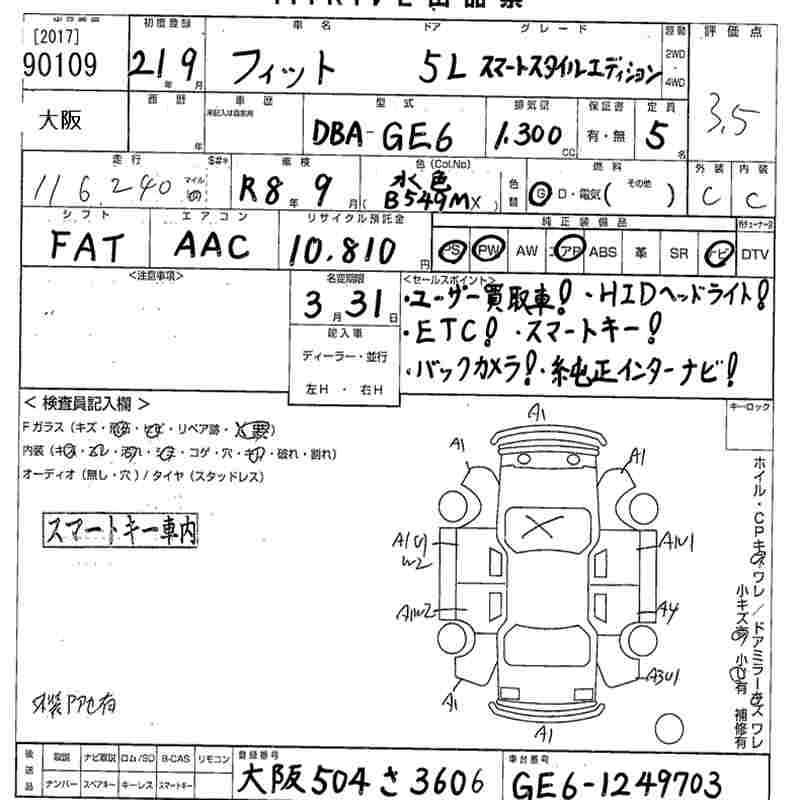 初度登録 車名 ドア グレード 駆動 評価点
[2017]
90109 21年9月 フィット 5L スマートスタイルエディション 2WD・4WD 3.5
西暦 車歴 型式 排気量 保証書 定員
大阪 年 未記入は自家用 DBA-GE6 1.300cc 有・無 5名
走行 車検 色(Col.No) 燃料 外装 内装
116,240 マイル R8年9月 水色 (B549MX) 色替 G D・電気(その他) C C
シフト エアコン リサイクル預託金 純正装備品
FAT AAC 10.810円 PS PW AW エアB ABS 革 SR ナビ DTV
<注意事項> 名変期限 <セールスポイント>
3月31日 ・ユーザー買取車! ・HIDヘッドライト!
輸入車 ・ETC! ・スマートキー!
ディーラー・並行 ・バックカメラ!・純正インターナビ!
左H・右H
<検査員記入欄> キーロック
Fガラス(キズ・・・リペア跡・X要)
内装(キズ・・・・コゲ・穴・・破れ・割れ)
オーディオ(無し・穴)/タイヤ(スタッドレス)
スマートキー車内
A1
A1 A1
A1U1 W2 A1U1
A1W2 A4
A1 A3U1
A1
ホイル・CPキズワレ/ドアミラーキズワレ
小キズ有 小凹有 補修有
外装アセ有
後送品 取説 ナビ取説 ロム/SD B-CAS リモコン 登録番号 車台番号
ナンバー スペアキー キーレス スマートキー 大阪504さ3606 GE6-1249703